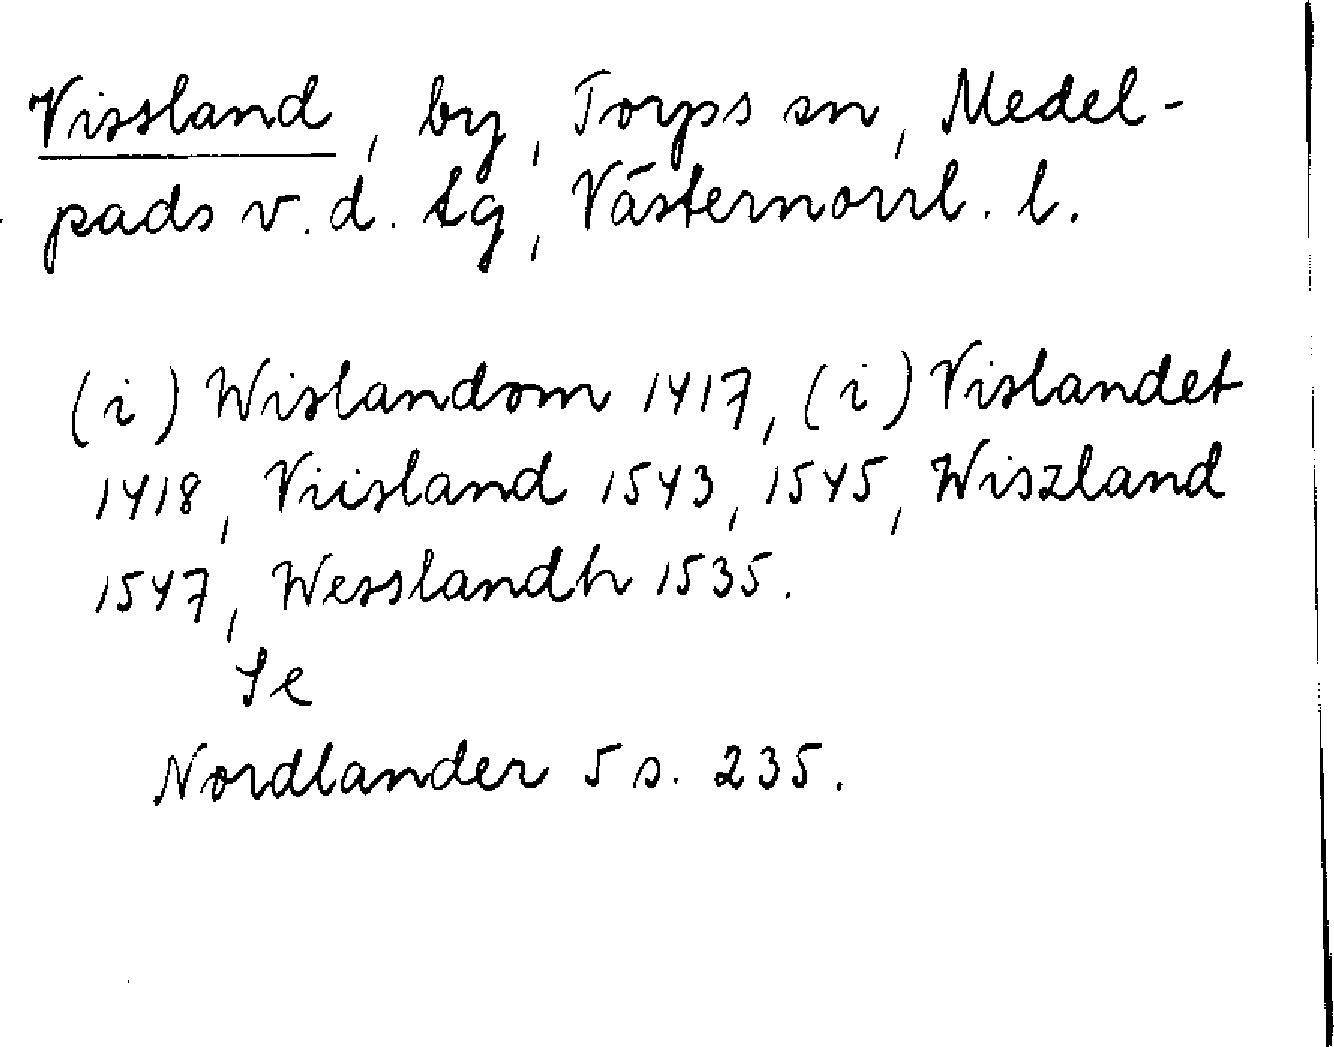 Vissland, by, Torps sn, Medel-
pads v. d. tg, Västernorrl. l.
(i) Wislandom 1417, (i) Vislandet
1418, Viisland 1543, 1545, Wiszland
1547, Wesslandh 1535.
Se
Nordlander 5 s. 235.